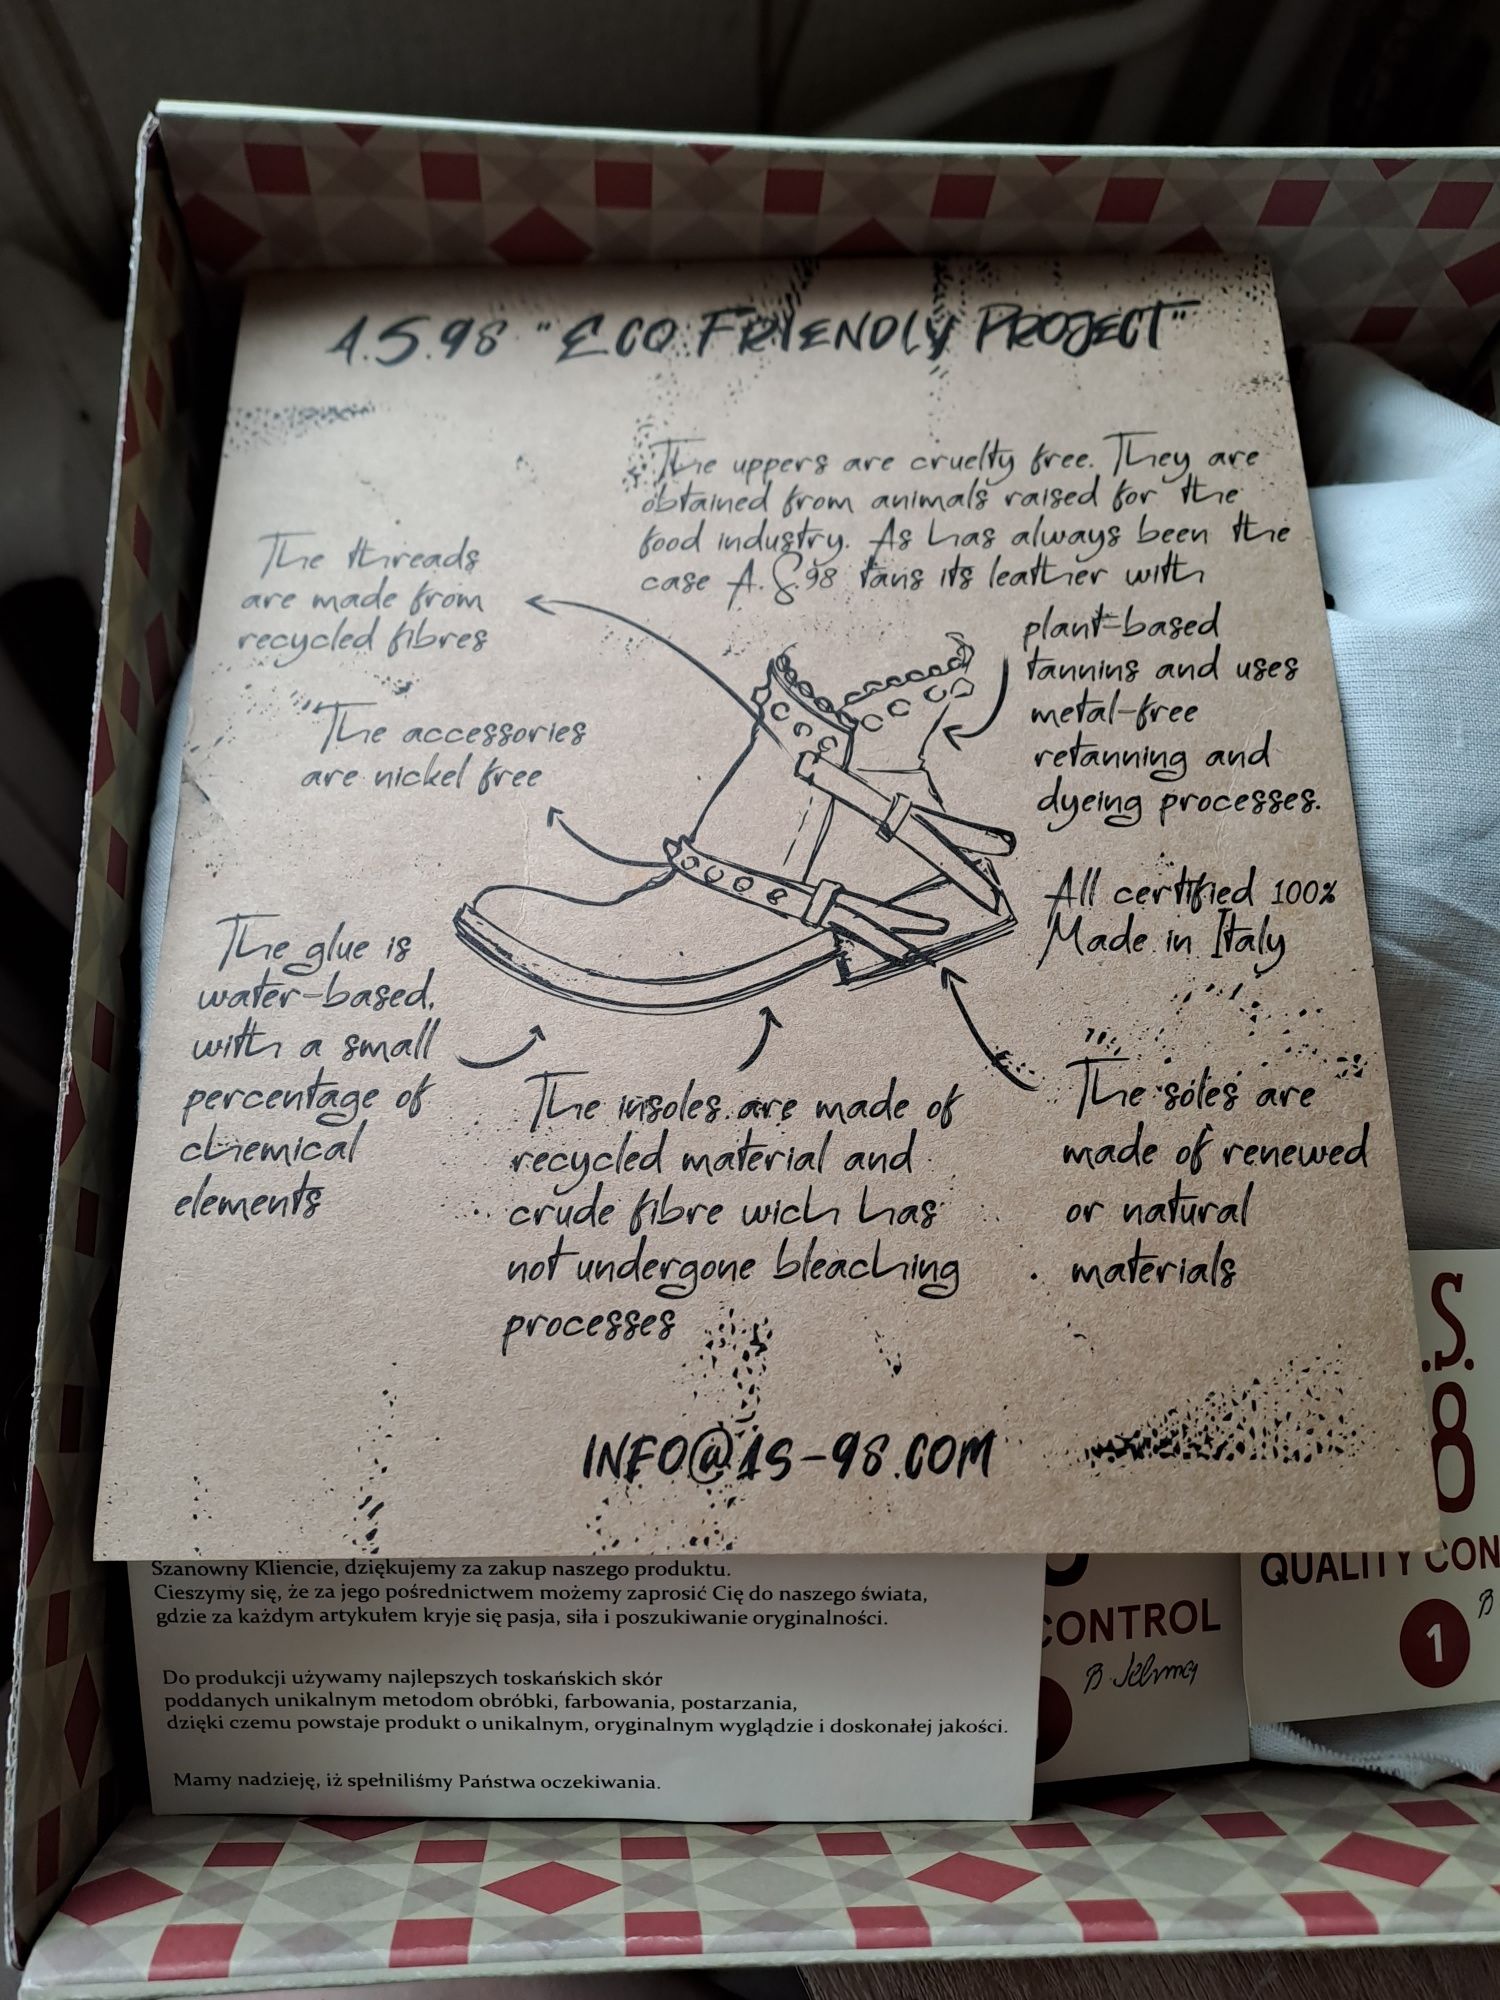 A.S.98 "ECO FRIENDLY PROJECT"
The uppers are cruelty free. They are
obtained from animals raised for the
food industry. As has always been the
case A.S.98 tans its leather with
plant-based
tannins and uses
metal-free
retanning and
dyeing processes.
The threads
are made from
recycled fibres
The accessories
are nickel free
All certified 100%
Made in Italy
The glue is
water-based,
with a small
percentage of
chemical
elements
The insoles are made of
recycled material and
crude fibre wich has
not undergone bleaching
processes
The soles are
made of renewed
or natural
materials
INFO@AS-98.COM
Szanowny Kliencie, dziękujemy za zakup naszego produktu.
Cieszymy się, że za jego pośrednictwem możemy zaprosić Cię do naszego świata,
gdzie za każdym artykułem kryje się pasja, siła i poszukiwanie oryginalności.
Do produkcji używamy najlepszych toskańskich skór
poddanych unikalnym metodom obróbki, farbowania, postarzania,
dzięki czemu powstaje produkt o unikalnym, oryginalnym wyglądzie i doskonałej jakości.
Mamy nadzieję, iż spełniliśmy Państwa oczekiwania.
CONTROL
.S.
8
QUALITY CON
1